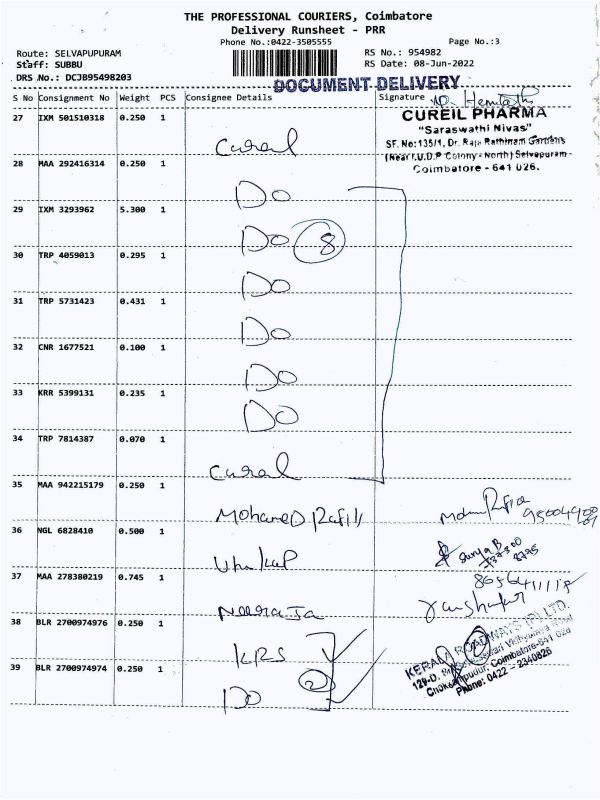 THE PROFESSIONAL COURIERS, Coimbatore
Delivery Runsheet - PRR
Phone No.:0422-3505555
Page No.:3
Route: SELVAPUPURAM
Staff: SUBBU
DRS No.: DCJB95498203
RS No.: 954982
RS Date: 08-Jun-2022
DOCUMENT DELIVERY
S No Consignment No Weight PCS Consignee Details Signature
CUREIL PHARMA
"Saraswathi Nivas"
SF. No:135/1, Dr. Raja Rathinam Gardens
(Near T.U.D.P Colony - North) Selvapuram -
Coimbatore - 641 026.
27 IXM 501510318 0.250 1 Cureil
28 MAA 292416314 0.250 1 Do
29 IXM 3293962 5.300 1 Do 8
30 TRP 4059013 0.295 1 Do
31 TRP 5731423 0.431 1 Do
32 CNR 1677521 0.100 1 Do
33 KRR 5399131 0.235 1 Do
34 TRP 7814387 0.070 1 Cureil
35 MAA 942215179 0.250 1
36 NGL 6828410 0.500 1
Surya B
37 MAA 278380219 0.745 1 Neeraja
38 BLR 2700974976 0.250 1 KRS
39 BLR 2700974974 0.250 1 Do 2
KERALA ROADWAYS (P) LTD.
Coimbatore-641 026
Phone: 0422 - 2340826